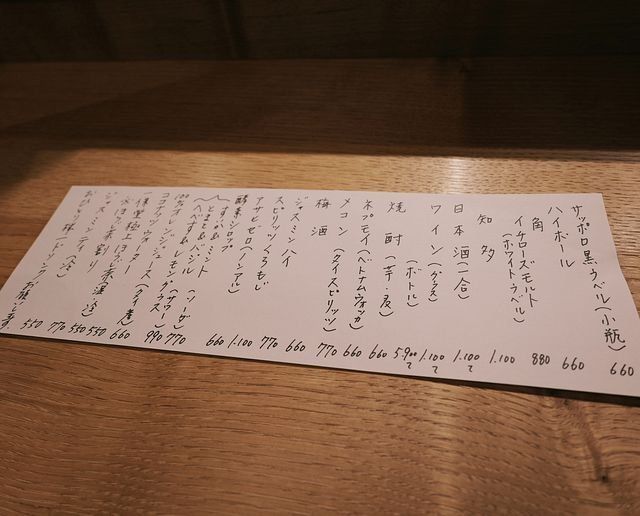 サッポロ黒ラベル(小瓶) 660
ハイボール
角 660
知多 880
イチローズモルト
(ホワイトラベル) 1.100
日本酒(一合) 1.100〜
ワイン(グラス) 1.100〜
(ボトル) 5.900〜
焼酎(芋・麦) 660
ネプモイ(ベトナムウォッカ) 660
メコン(タイスピリッツ) 770
梅酒 660
ジャスミンハイ 770
スピリッツくろもじ 1.100
アサヒゼロ(ノンアル) 660
酵素シロップ
すいか&ミント
とまと&バジル
へべす&レモングラス(ソーダ) 770
100%オレンジジュース(サワー) 990
ココナッツウォーター(タイ産) 660
一保堂極上ほうじ茶 550
水ほうじ茶割り 550
ジャスミンティ(冷) 550
おひとり様 ドリンクお願いします